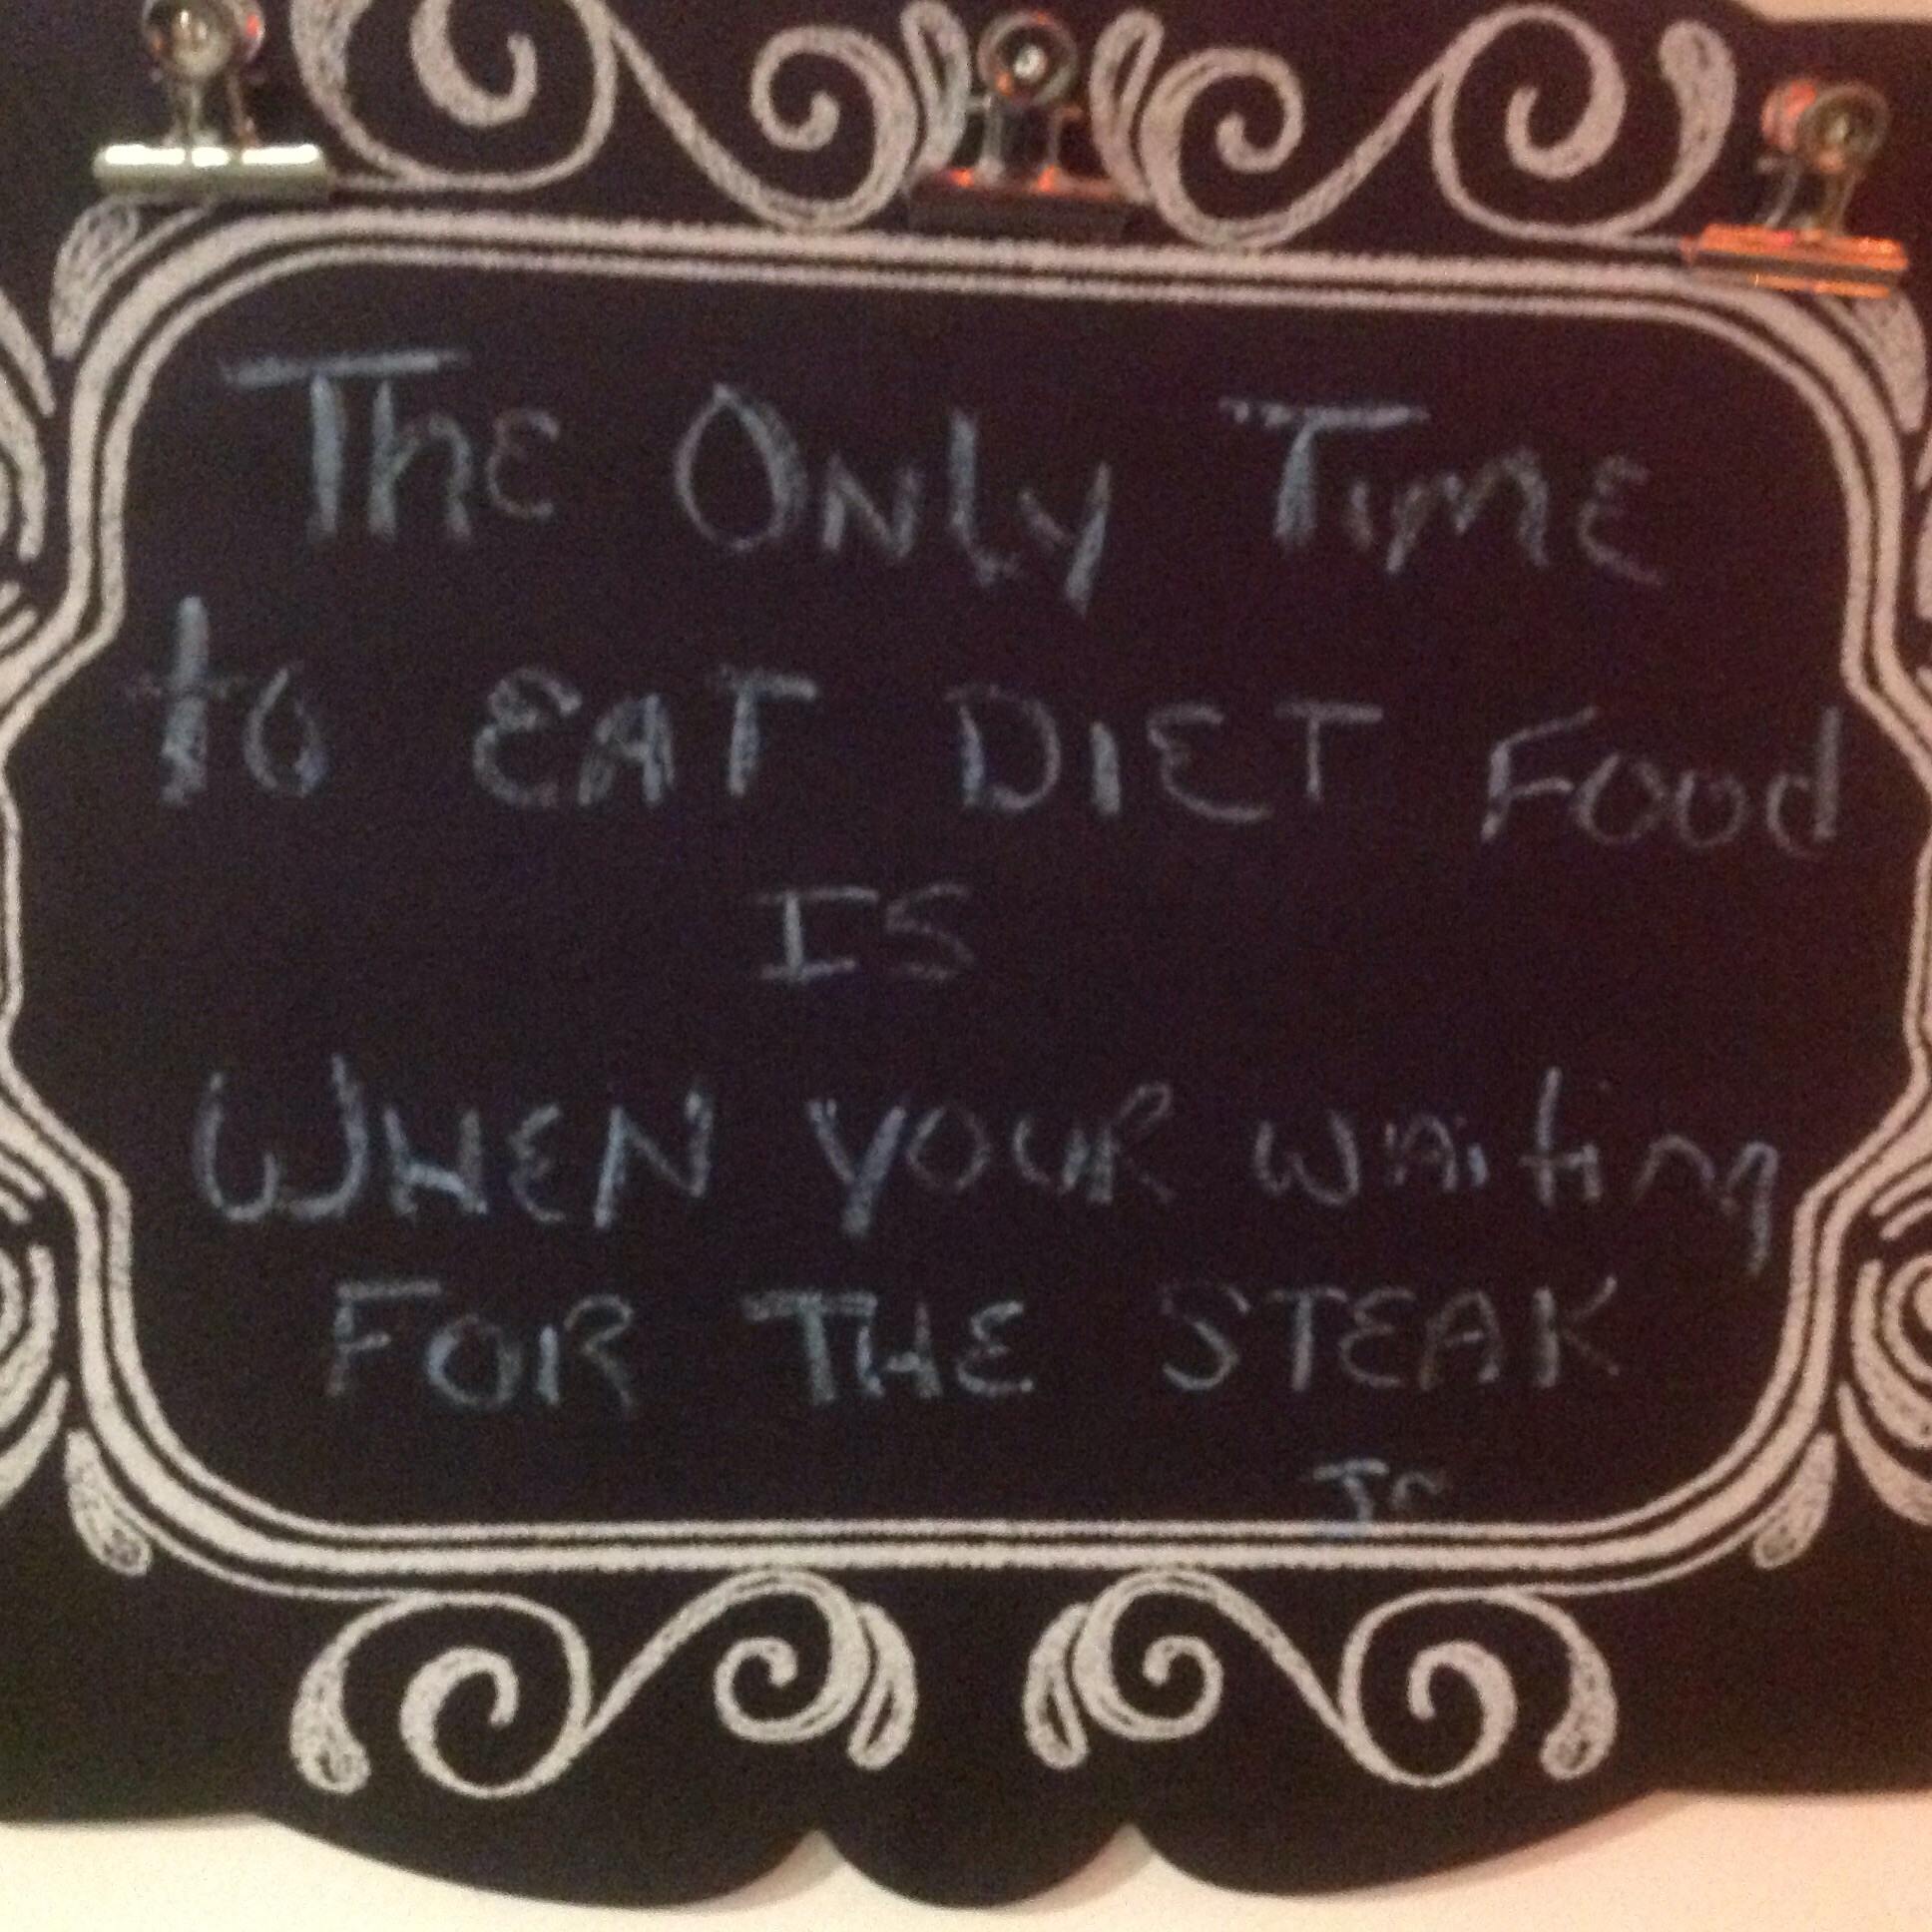 The Only Time
to EAT DIET Food
IS
WHEN YOUR WAiting
FOR THE STEAK